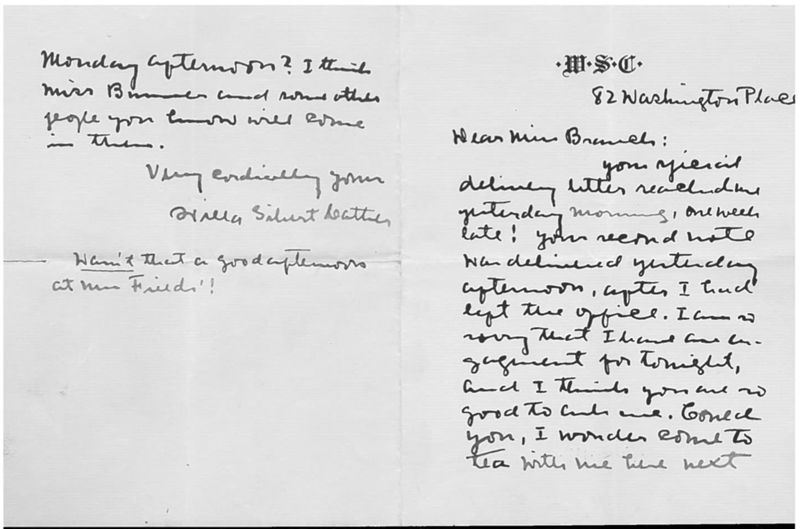 ·W·S·C·
82 Washington Place
Dear Miss Branch:
your special
delivery letter reached me
yesterday morning, one week
late! Your second note
was delivered yesterday
afternoon, after I had
left the office. I am so
sorry that I have an en-
gagment for tonight,
and I think you are so
good to ask me. Could
you, I wonder come to
tea with me here next
Monday afternoon? I think
Miss and some other
people you know will come
in then.
Very cordially yours
Willa Sibert Cather
Wasn't that a good afternoon
at Mrs Fields'!